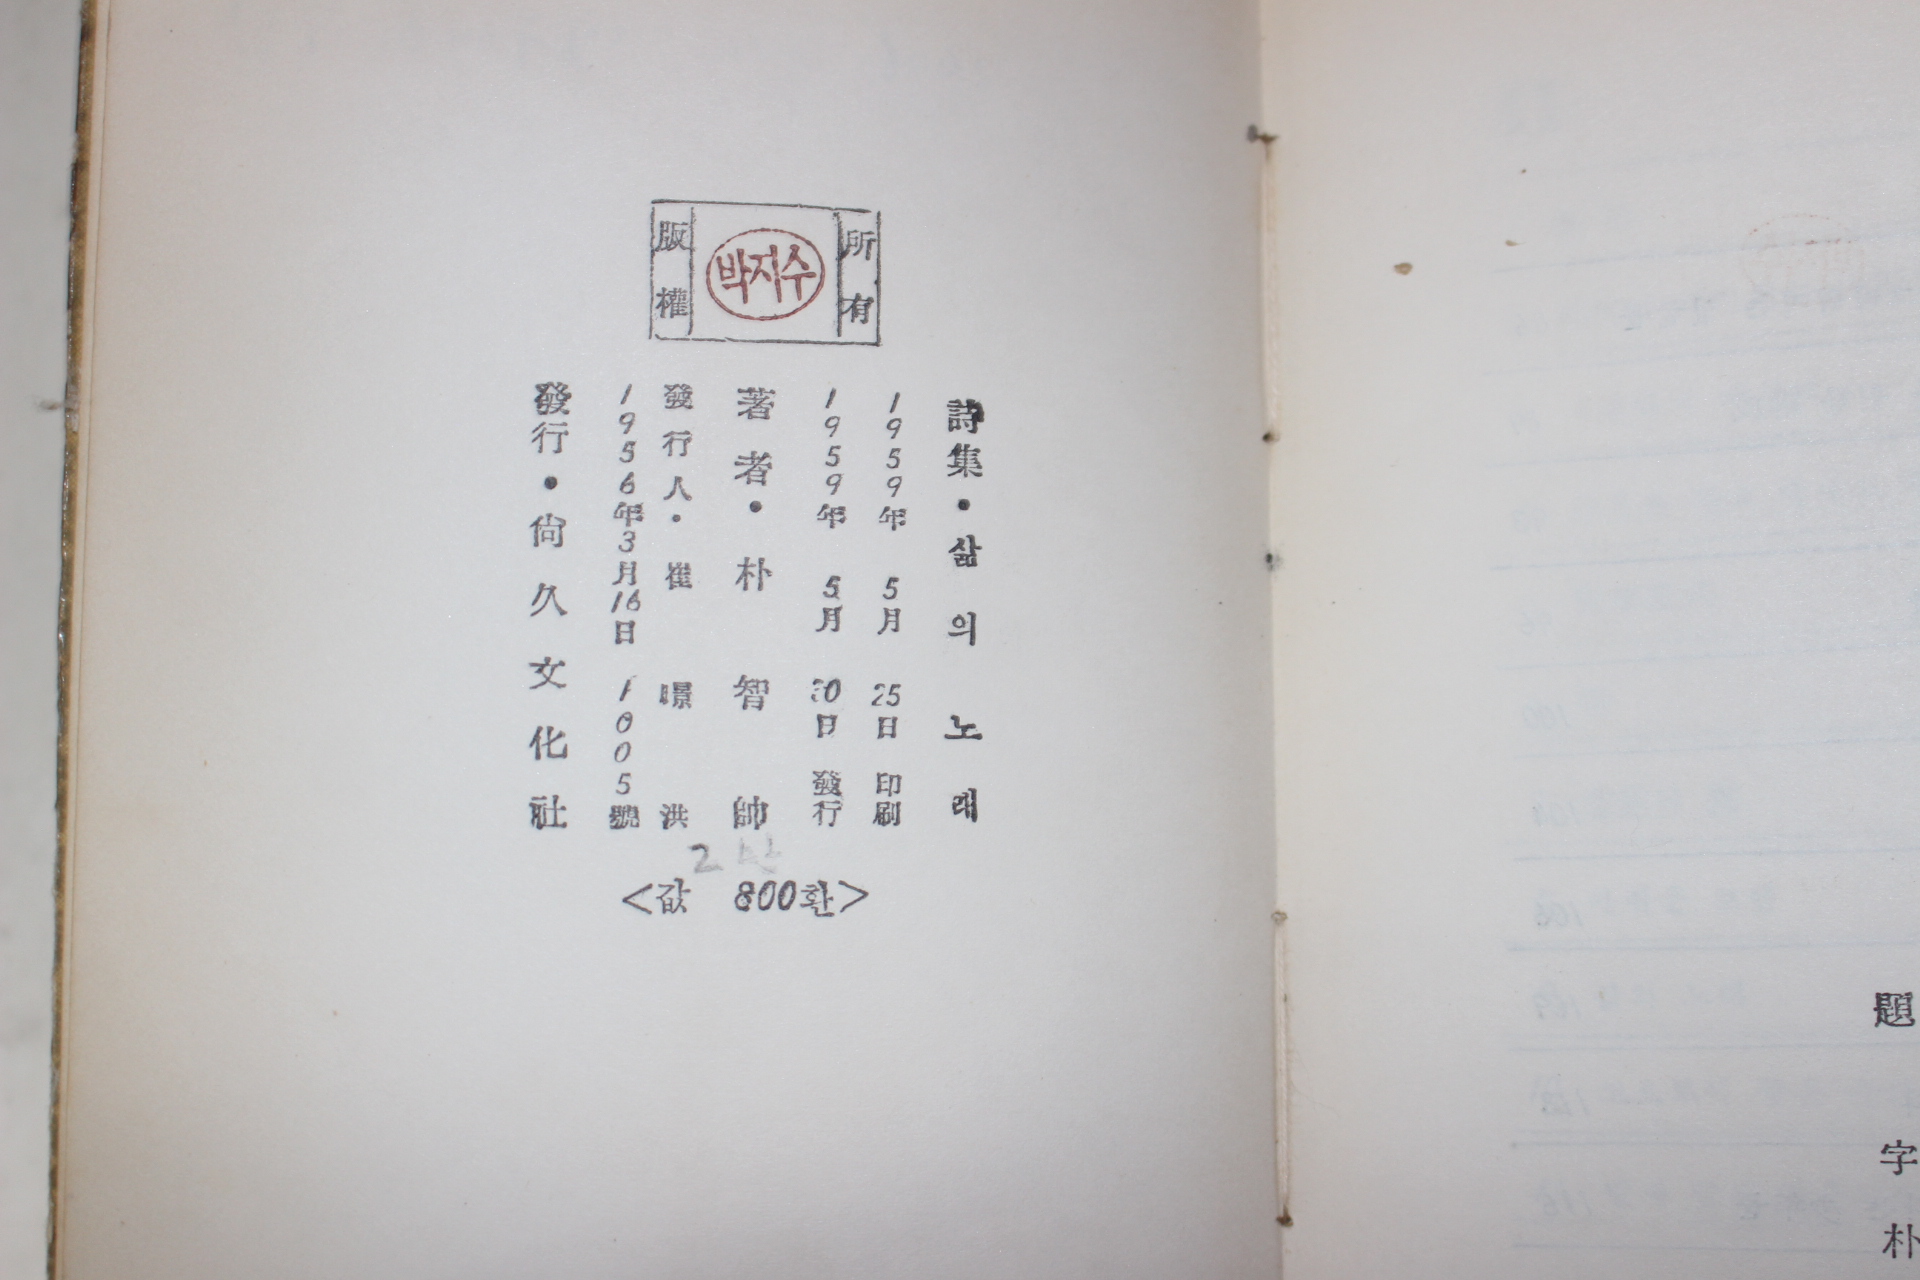 版權 所有
박지수
詩集・삶의 노래
1959年 5月 25日 印刷
1959年 5月 30日 發行
著者・朴智帥
發行人・崔暻洪
1956年3月16日 1005號
發行・尙久文化社
2
<값 800환>
題字 朴